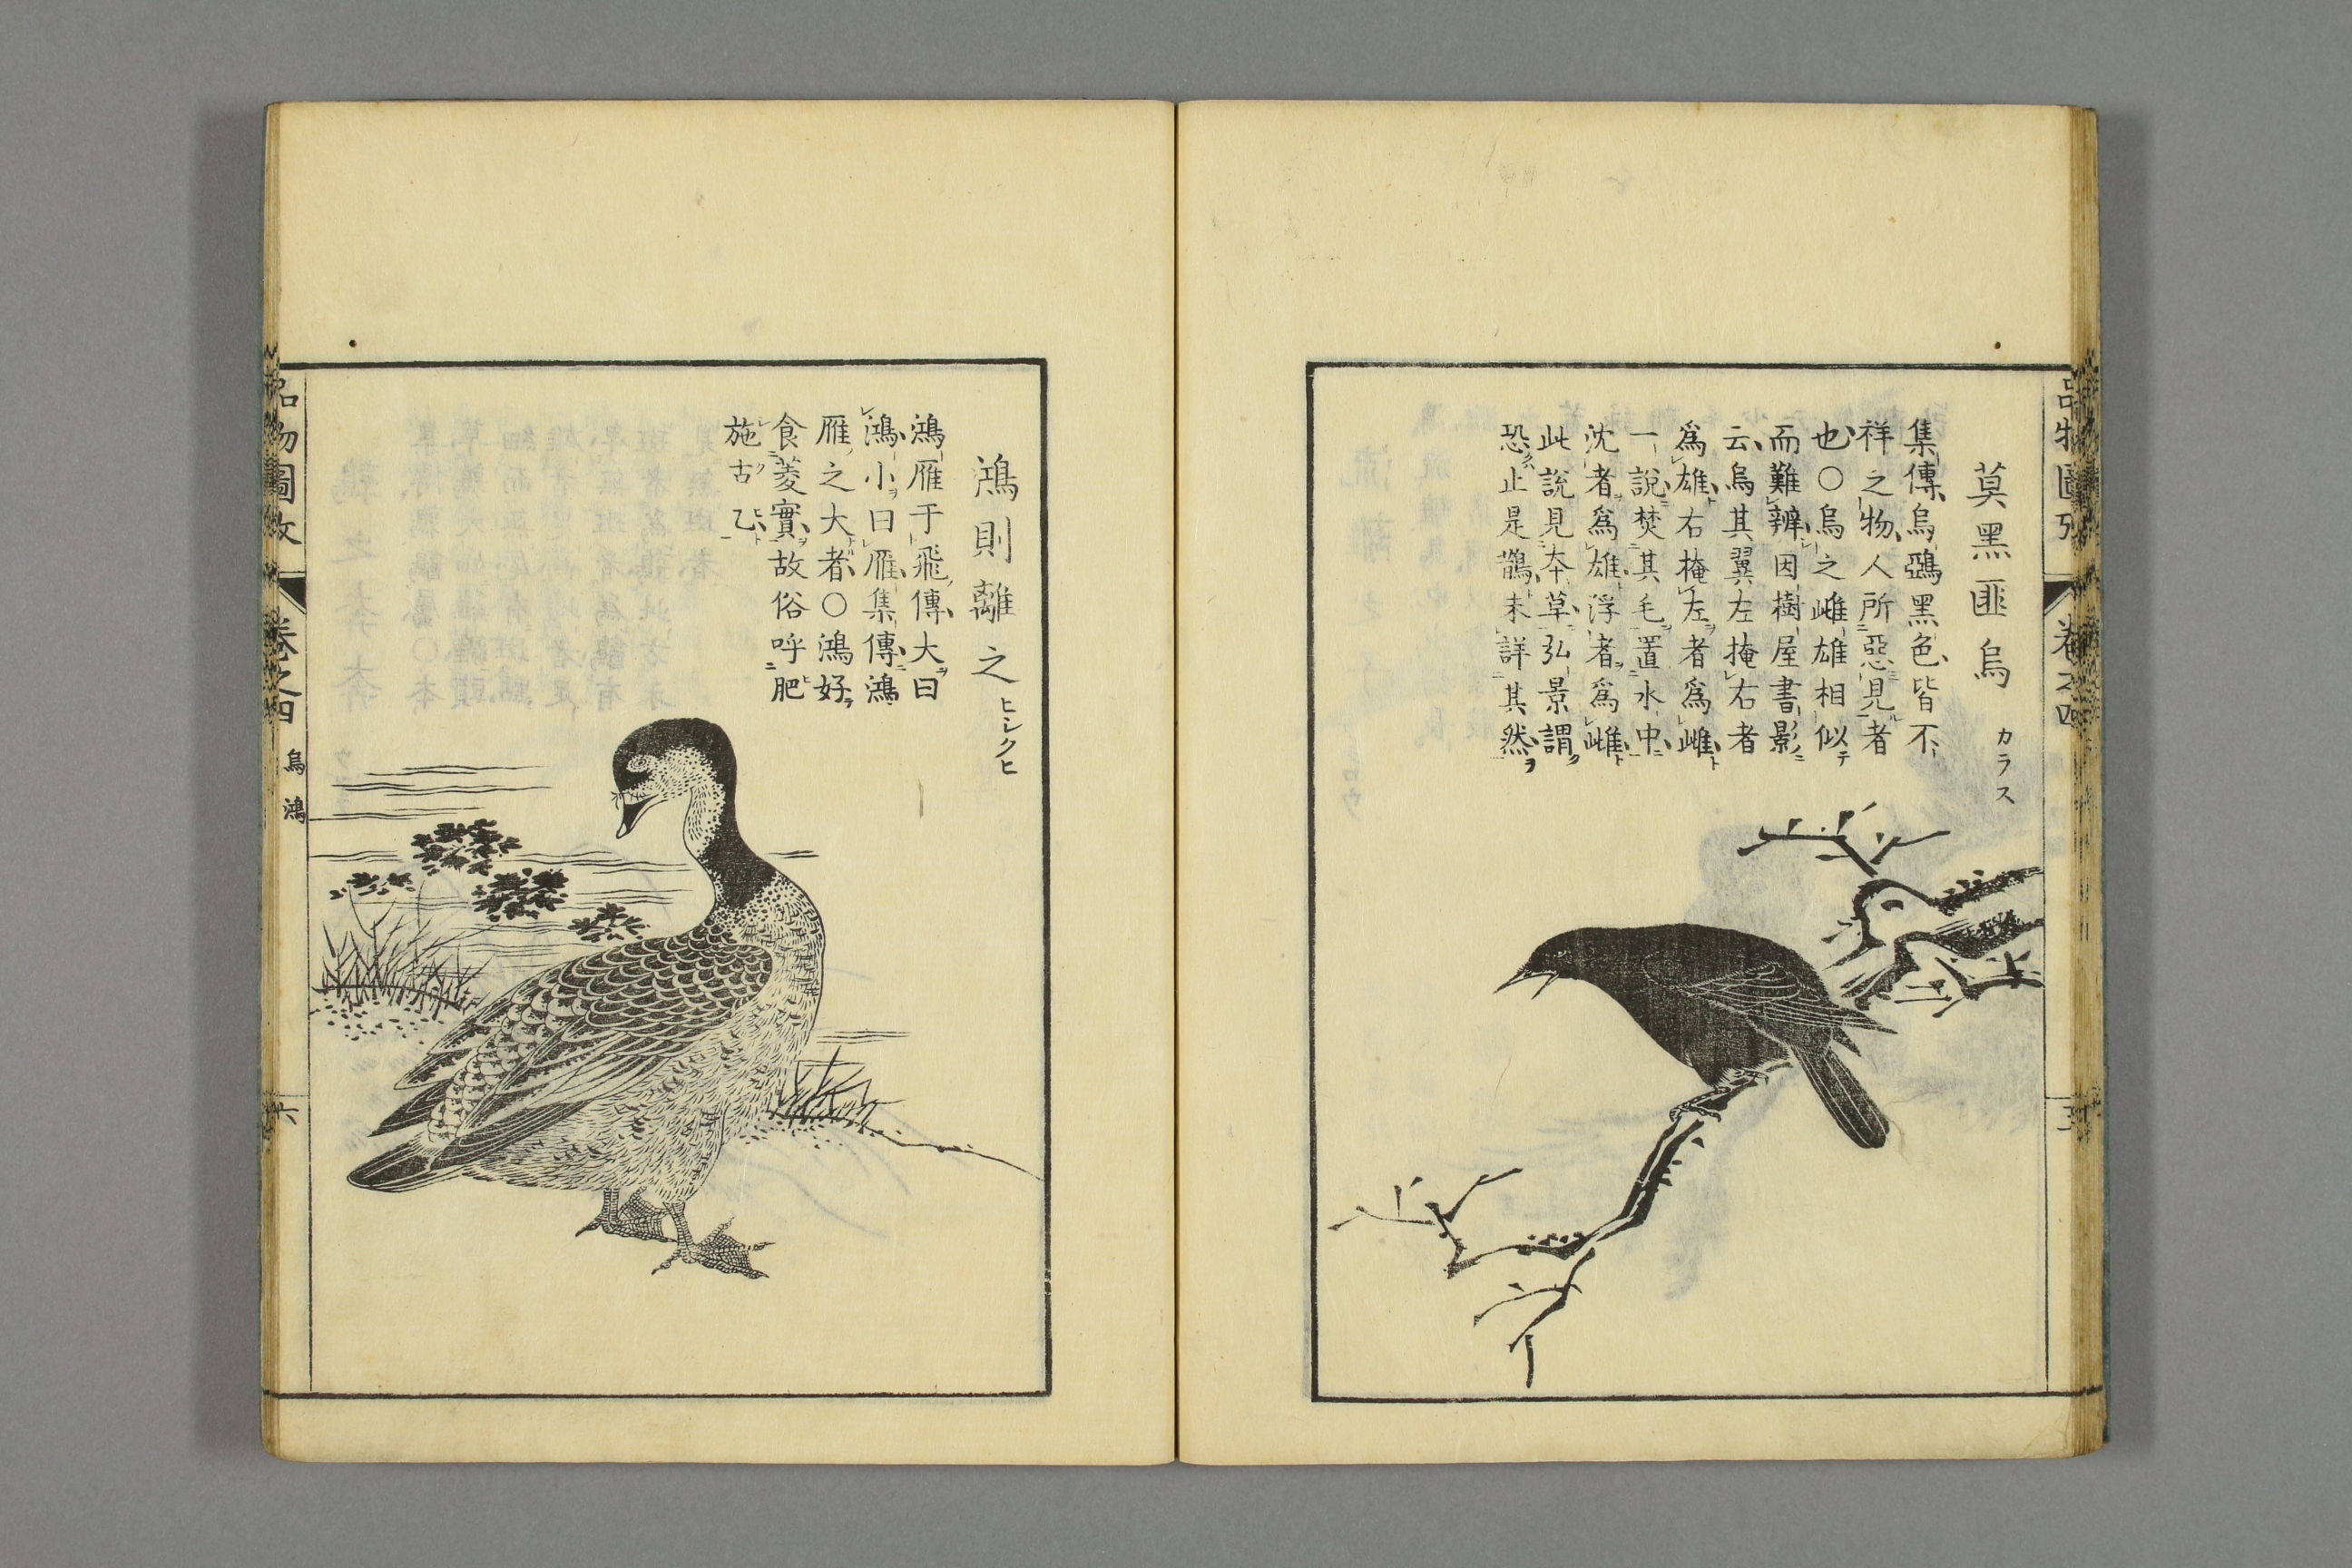 莫黑匪烏 カラス
集傳烏鵶黑色皆不
祥之物人所惡見者
也〇烏之雌雄相似
而難辨因樹屋書影
云烏其翼左掩右者
爲雄右掩左者爲雌
一說焚其毛置水中
沈者爲雄浮者爲雌
此說見本草弘景謂
恐止是鵲未詳其然
鴻則離之 ヒシクヒ
鴻雁于飛傳大曰
鴻小曰雁集傳鴻
雁之大者〇鴻好
食菱實故俗呼肥
施古乙
品物圖攷 卷之四 烏 鴻 六